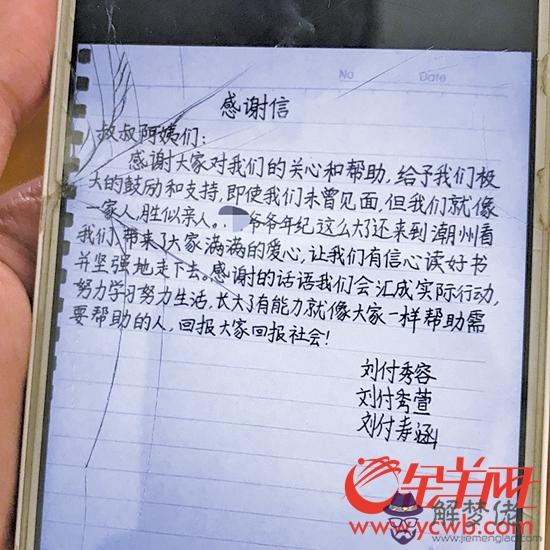 No
Date
感谢信
叔叔阿姨们：
感谢大家对我们的关心和帮助，给予我们极
大的鼓励和支持，即使我们未曾见面，但我们就像
一家人，胜似亲人。爷爷年纪这么大了还来到潮州看
我们，带来了大家满满的爱心，让我们有信心读好书
并坚强地走下去。感谢的话语我们会汇成实际行动，
努力学习努力生活，长大了有能力就像大家一样帮助需
要帮助的人，回报大家回报社会！
刘付秀容
刘付秀萱
刘付寿涵
金羊网
www.ycwb.com
解梦佬
www.jiemenglao.com